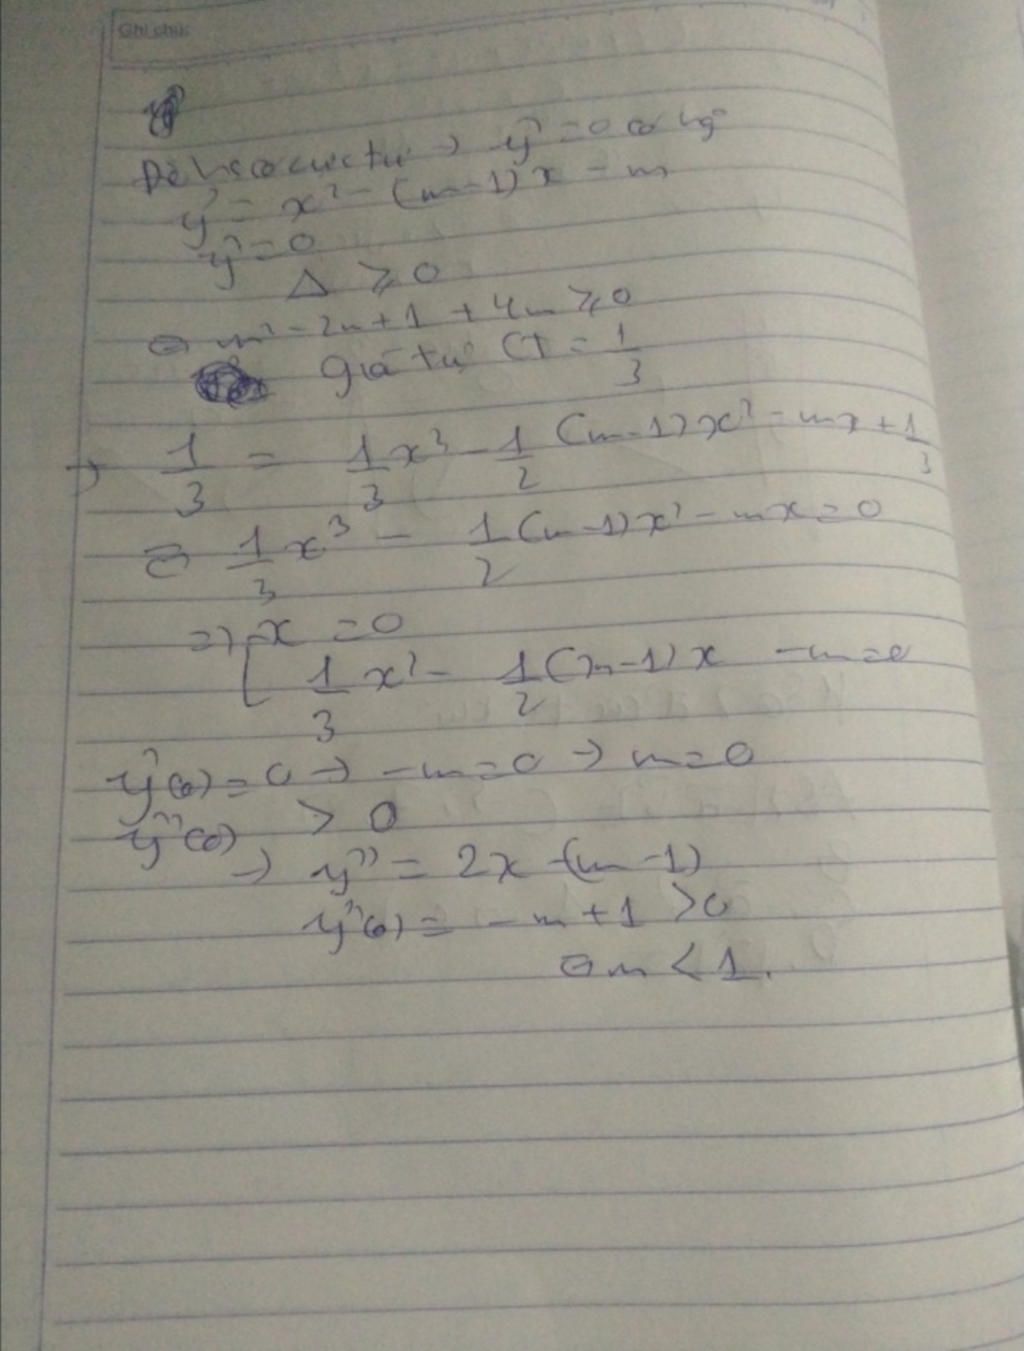 Ghi chú:
Để hs có cực trị → y' = 0 có ng°
y' = x² - (m-1)x - m
y' = 0
Δ ⩾ 0
⇔ m² - 2m + 1 + 4m ⩾ 0
giá trị CT = 1/3
→ 1/3 = 1/3 x³ - 1/2 (m-1)x² - mx + 1/3
⇔ 1/3 x³ - 1/2 (m-1)x² - mx = 0
=> [ x = 0
1/3 x² - 1/2 (m-1)x - m = 0
y'(0) = 0 → -m = 0 → m = 0
y''(0) > 0
→ y'' = 2x - (m-1)
y''(0) = -m + 1 > 0
⇔ m < 1.